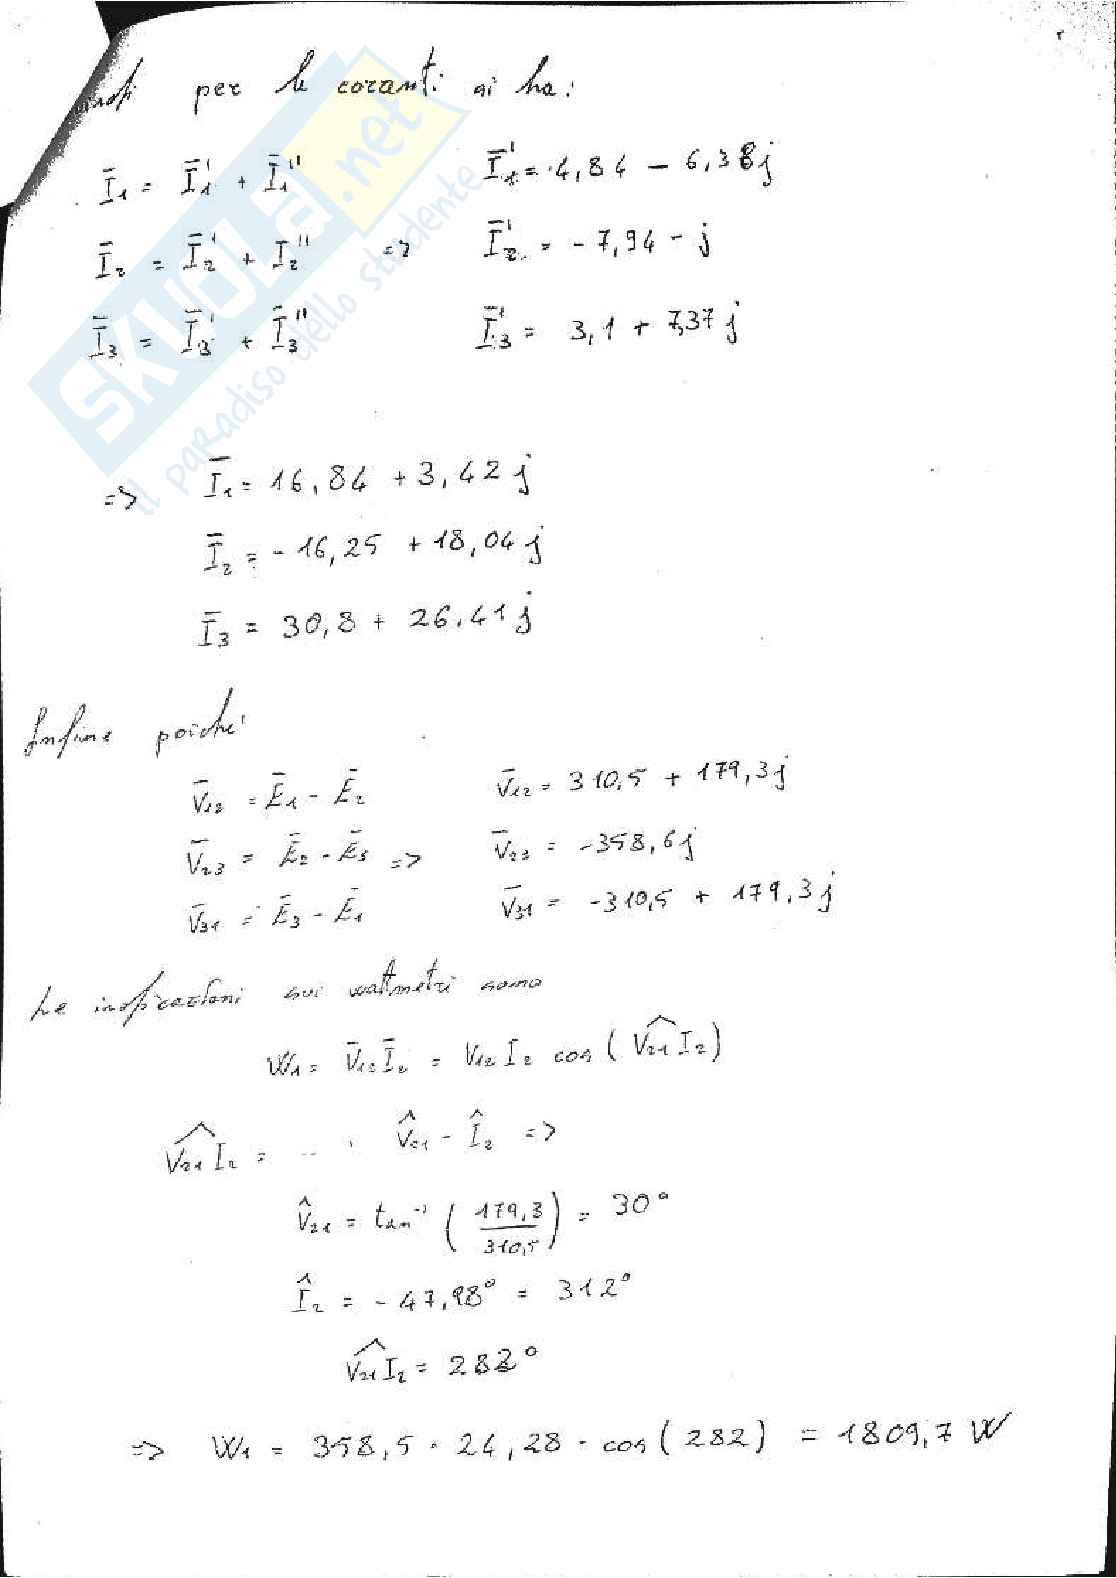 per le coranti si ha:
Ī₁ = Ī₁' + Ī₁''    Ī₁' = 4,84 - 6,38j
Ī₂ = Ī₂' + I₂''  =>  Ī₂' = -7,94 - j
Ī₃ = Ī₃' + Ī₃''    Ī₃' = 3,1 + 7,37j
=> Ī₁ = 16,84 + 3,42j
Ī₂ = -16,25 + 18,04j
Ī₃ = 30,8 + 26.41j
Infine poiché
V̄₁₂ = Ē₁ - Ē₂    V̄₁₂ = 310,5 + 179,3j
V̄₂₃ = Ē₂ - Ē₃  =>  V̄₂₃ = -358,6j
V̄₃₁ = Ē₃ - Ē₁    V̄₃₁ = -310,5 + 179,3j
Le indicazioni sui wattmetri sono
W₁ = V̄₁₂ Ī₂ = V₁₂ I₂ cos(V₂₁^I₂)
V₂₁^I₂ = V̂₂₁ - Î₂ =>
V̂₂₁ = tan⁻¹ (179,3/310,5) = 30°
Î₂ = -47,98° = 312°
V₂₁^I₂ = 282°
=> W₁ = 358,5 · 24,28 · cos(282) = 1809,7 W
SKUOLA.net
il paradiso dello studente